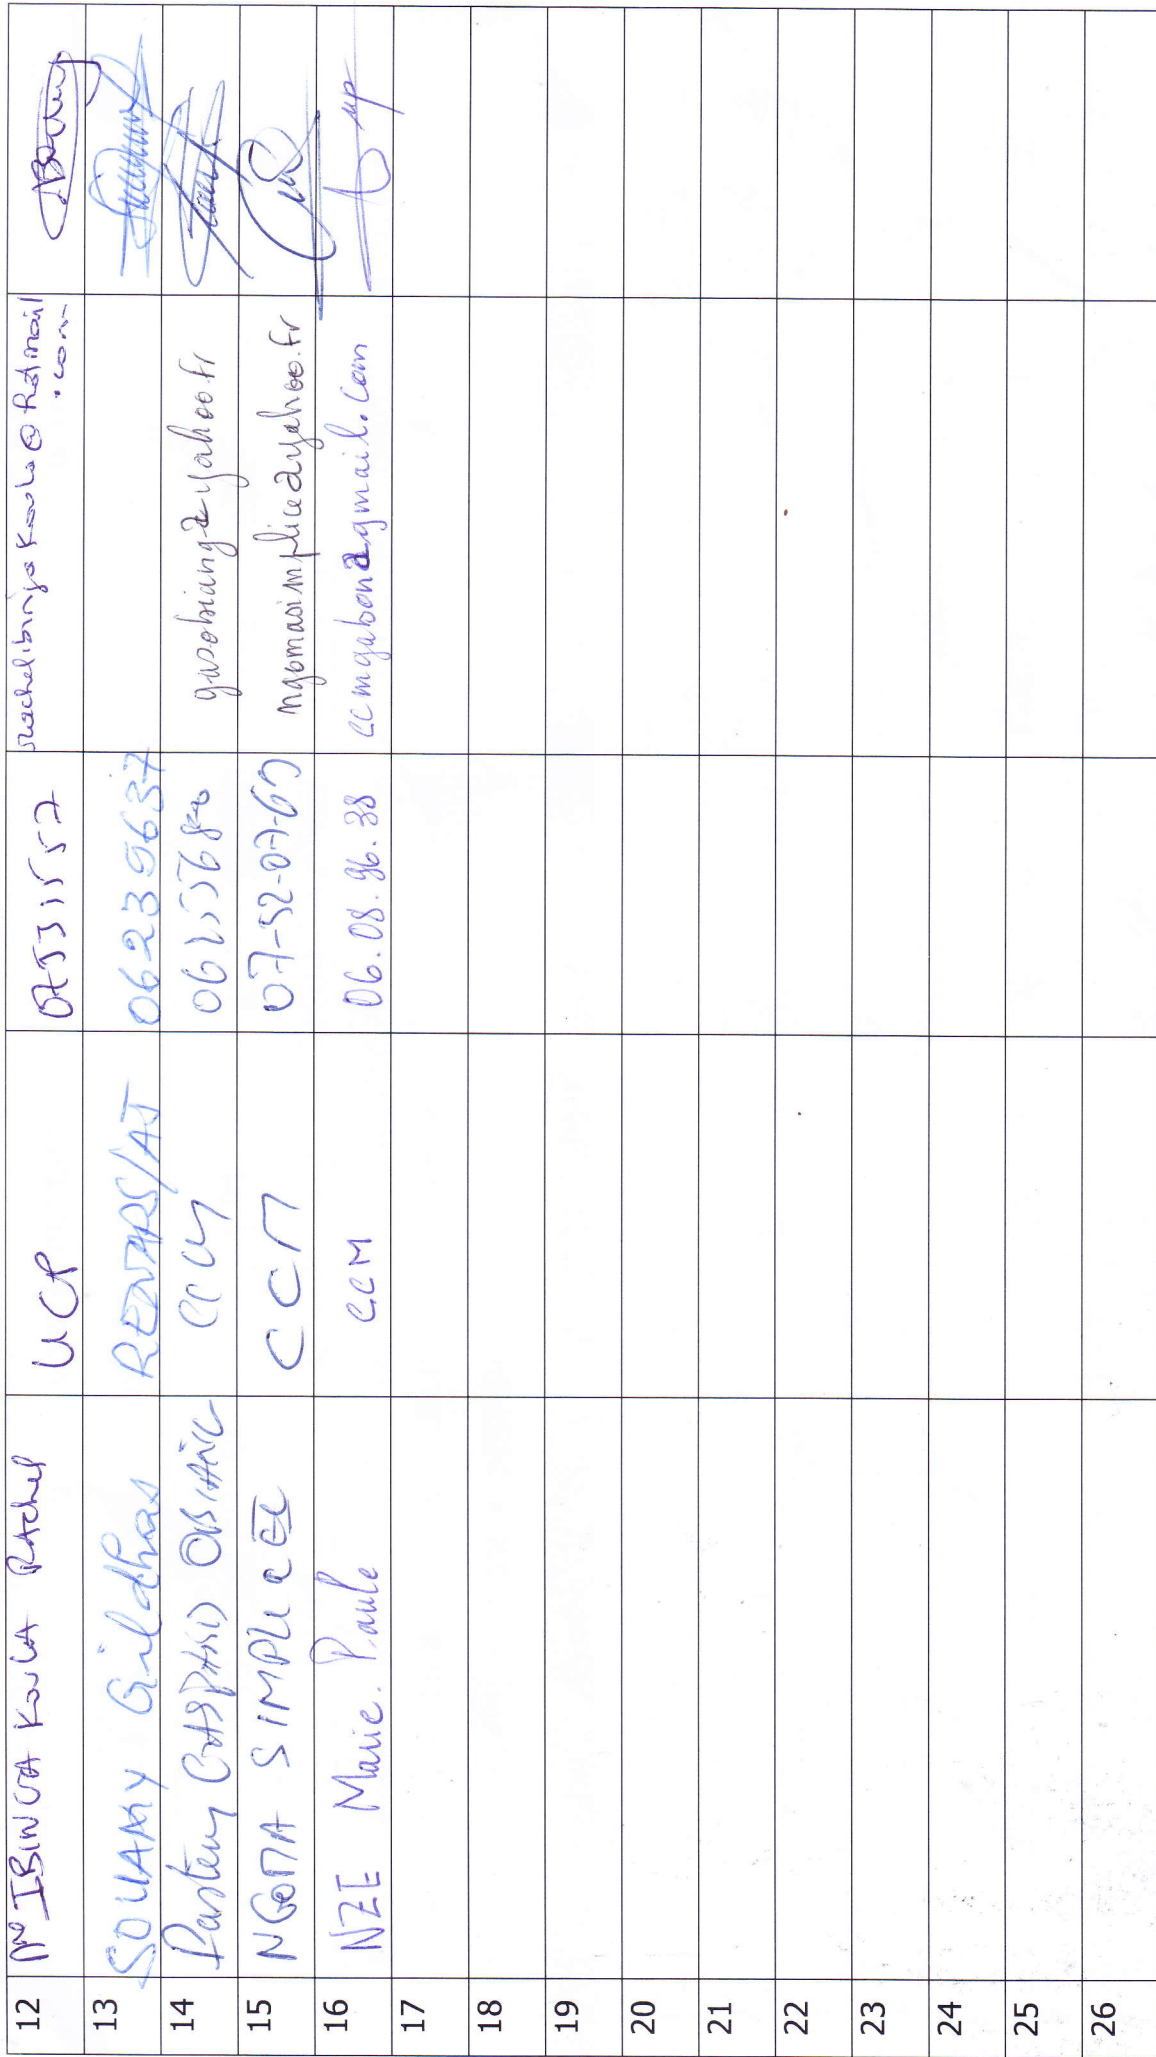 12 Mme IBINGA KOULA Rachel UCP 07531557 rachelibingakoula@hotmail
.com
13 SOUAMY Gildhas REDVARS/AT 06239637
14 Pasteur GASPARD OBIANG CCM gasobiang@yahoo.fr
15 NGOMA SIMPLICE CCM 07-52-07-69 ngomasimplice@yahoo.fr
16 NZE Marie. Paule CCM 06.08.96.38 ccmgabon@gmail.com
17
18
19
20
21
22
23
24
25
26